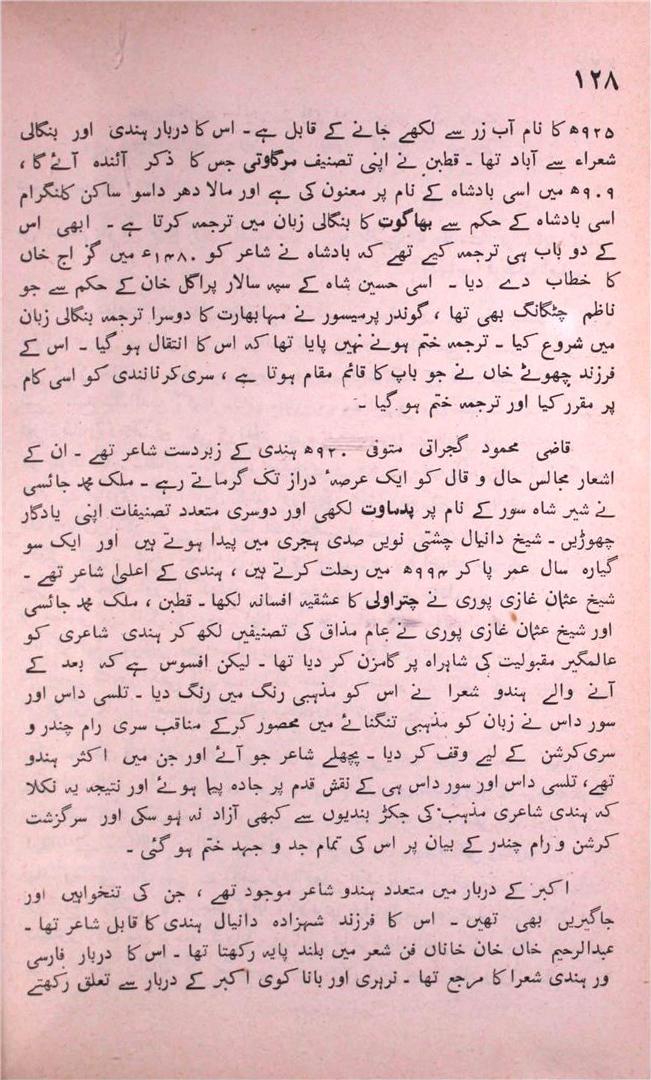 ۱۲۸
۹۲۵ھ کا نام آب زر سے لکھے جانے کے قابل ہے۔ اس کا دربار ہندی اور بنگالی
شعراء سے آباد تھا۔ قطبن نے اپنی تصنیف مرگاوتی جس کا ذکر آئندہ آئے گا،
۹۰۹ھ میں اسی بادشاہ کے نام پر معنون کی ہے اور مالا دھر داسو ساکن کلنگرام
اسی بادشاہ کے حکم سے بھاگوت کا بنگالی زبان میں ترجمہ کرتا ہے۔ ابھی اس
کے دو باب ہی ترجمہ کیے تھے کہ بادشاہ نے شاعر کو ۱۴۸۰ء میں گز اج خاں
کا خطاب دے دیا۔ اسی حسین شاہ کے سپہ سالار پراگل خان کے حکم سے جو
ناظم چٹگانگ بھی تھا، گوندر پرمیسور نے مہابھارت کا دوسرا ترجمہ بنگالی زبان
میں شروع کیا۔ ترجمہ ختم ہونے نہیں پایا تھا کہ اس کا انتقال ہو گیا۔ اس کے
فرزند چھوٹے خاں نے جو باپ کا قائم مقام ہوتا ہے، سری کرنانندی کو اسی کام
پر مقرر کیا اور ترجمہ ختم ہو گیا۔
قاضی محمود گجراتی متوفی ۹۲۰ھ ہندی کے زبردست شاعر تھے۔ ان کے
اشعار مجالس حال و قال کو ایک عرصۂ دراز تک گرماتے رہے۔ ملک محمد جائسی
نے شیر شاہ سور کے نام پر پدماوت لکھی اور دوسری متعدد تصنیفات اپنی یادگار
چھوڑیں۔ شیخ دانیال چشتی نویں صدی ہجری میں پیدا ہوتے ہیں اور ایک سو
گیارہ سال عمر پا کر ۹۹۴ھ میں رحلت کرتے ہیں، ہندی کے اعلیٰ شاعر تھے۔
شیخ عثمان غازی پوری نے چتراولی کا عشقیہ افسانہ لکھا۔ قطبن، ملک محمد جائسی
اور شیخ عثمان غازی پوری نے عام مذاق کی تصنیفیں لکھ کر ہندی شاعری کو
عالمگیر مقبولیت کی شاہراہ پر گامزن کر دیا تھا۔ لیکن افسوس ہے کہ بعد کے
آنے والے ہندو شعرا نے اس کو مذہبی رنگ میں رنگ دیا۔ تلسی داس اور
سور داس نے زبان کو مذہبی تنگنائے میں محصور کرکے مناقب سری رام چندر و
سری کرشن کے لیے وقف کر دیا۔ پچھلے شاعر جو آئے اور جن میں اکثر ہندو
تھے، تلسی داس اور سور داس ہی کے نقش قدم پر جادہ پیما ہوئے اور نتیجہ یہ نکلا
کہ ہندی شاعری مذہب کی جکڑ بندیوں سے کبھی آزاد نہ ہو سکی اور سرگزشت
کرشن و رام چندر کے بیان پر اس کی تمام جد و جہد ختم ہو گئی۔
اکبر کے دربار میں متعدد ہندو شاعر موجود تھے، جن کی تنخواہیں اور
جاگیریں بھی تھیں۔ اس کا فرزند شہزادہ دانیال ہندی کا قابل شاعر تھا۔
عبدالرحیم خاں خان خاناں فن شعر میں بلند پایہ رکھتا تھا۔ اس کا دربار فارسی
ور ہندی شعرا کا مرجع تھا۔ نرہری اور بانا کوی اکبر کے دربار سے تعلق رکھتے